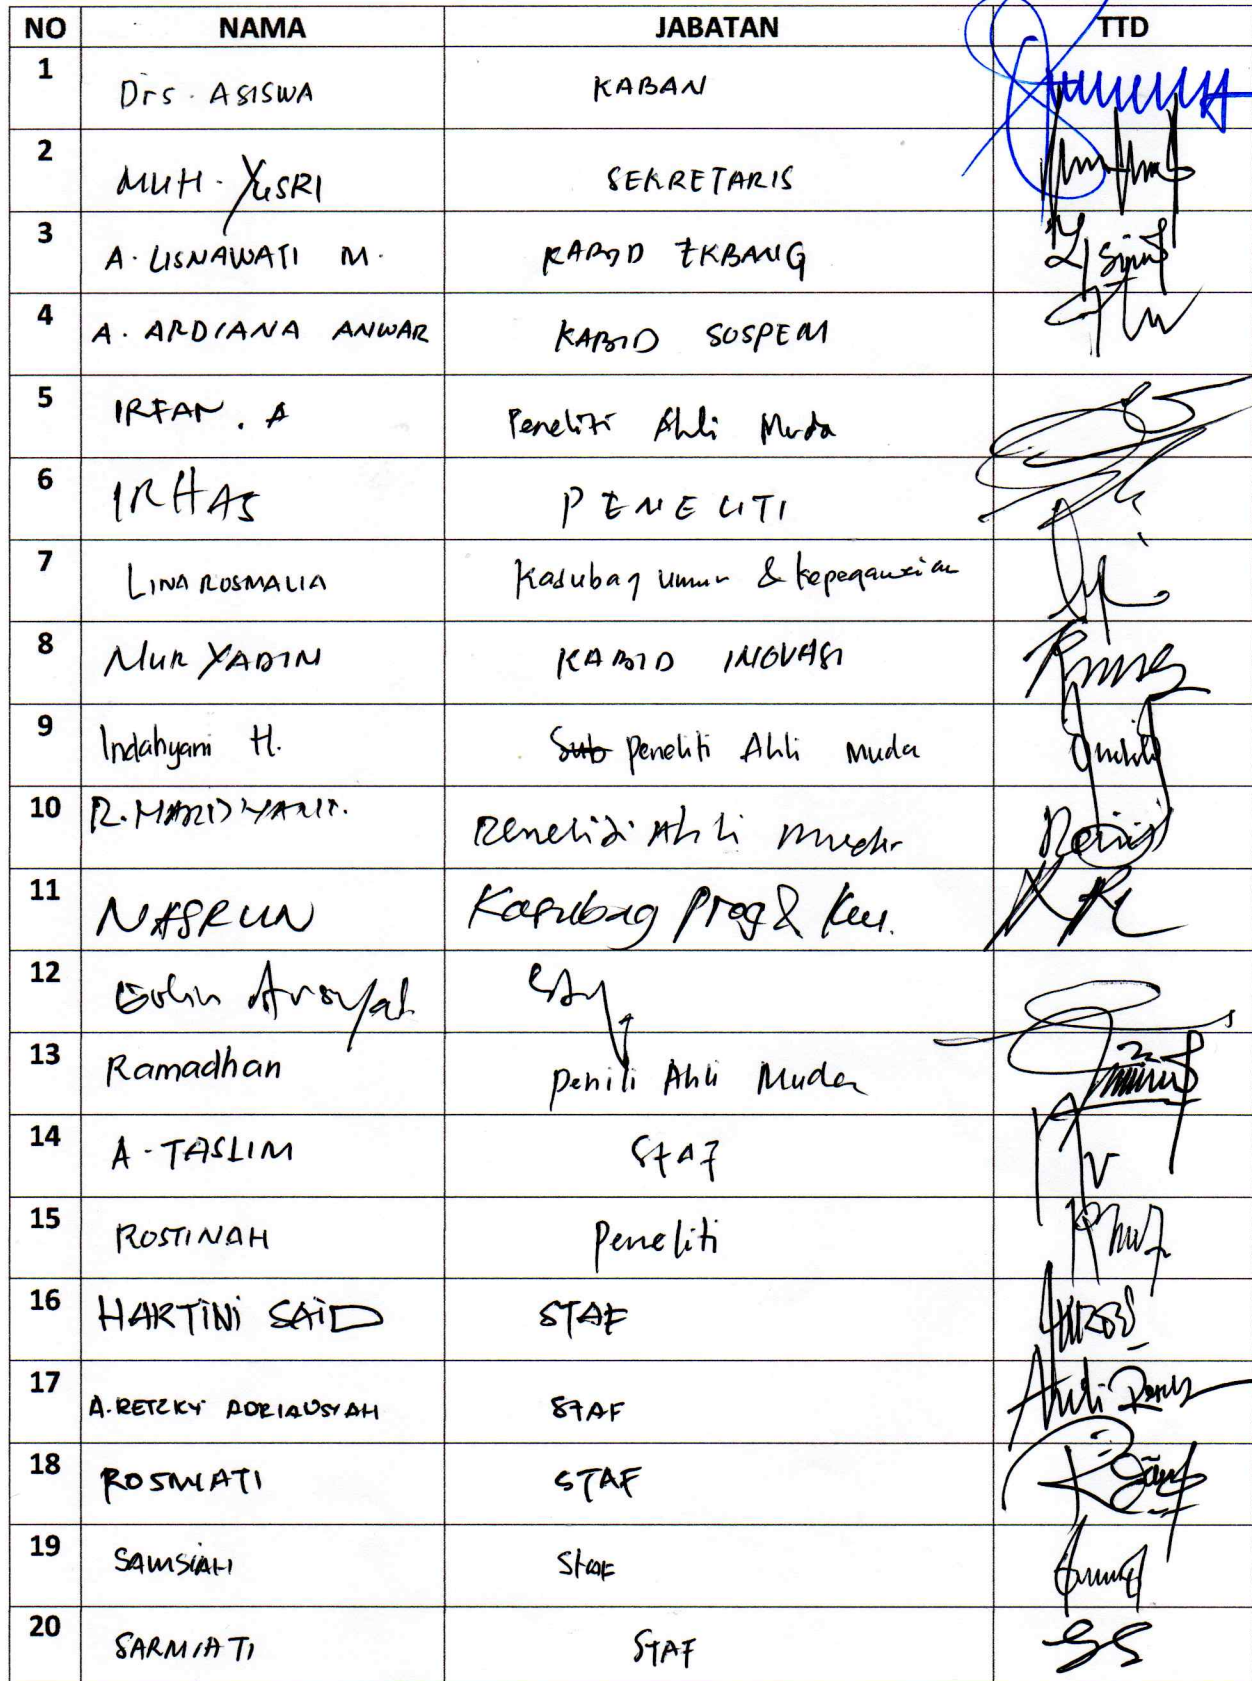 NO NAMA JABATAN TTD
1 Drs. ASISWA KABAN
2 MUH. YUSRI SEKRETARIS
3 A. LISNAWATI M. KABID EKBANG
4 A. ARDIANA ANWAR KABID SOSPEM
5 IRFAN. A Peneliti Ahli Muda
6 IRHAS PENELITI
7 LINA ROSMALIA Kasubag umum & kepegawaian
8 NUR YADIN KABID INOVASI
9 Indahyani H. Sub peneliti Ahli Muda
10 Peneliti Ahli Muda
11 NASRUN Kasubag Prog & Keu.
12
13 Ramadhan Peniti Ahli Muda
14 A. TASLIM STAF
15 ROSTINAH Peneliti
16 HARTINI SAID STAF
17 A. RETZKY ADRIANSYAH STAF
18 ROSMIATI STAF
19 SAMSIAH Staf
20 SARMIATI STAF